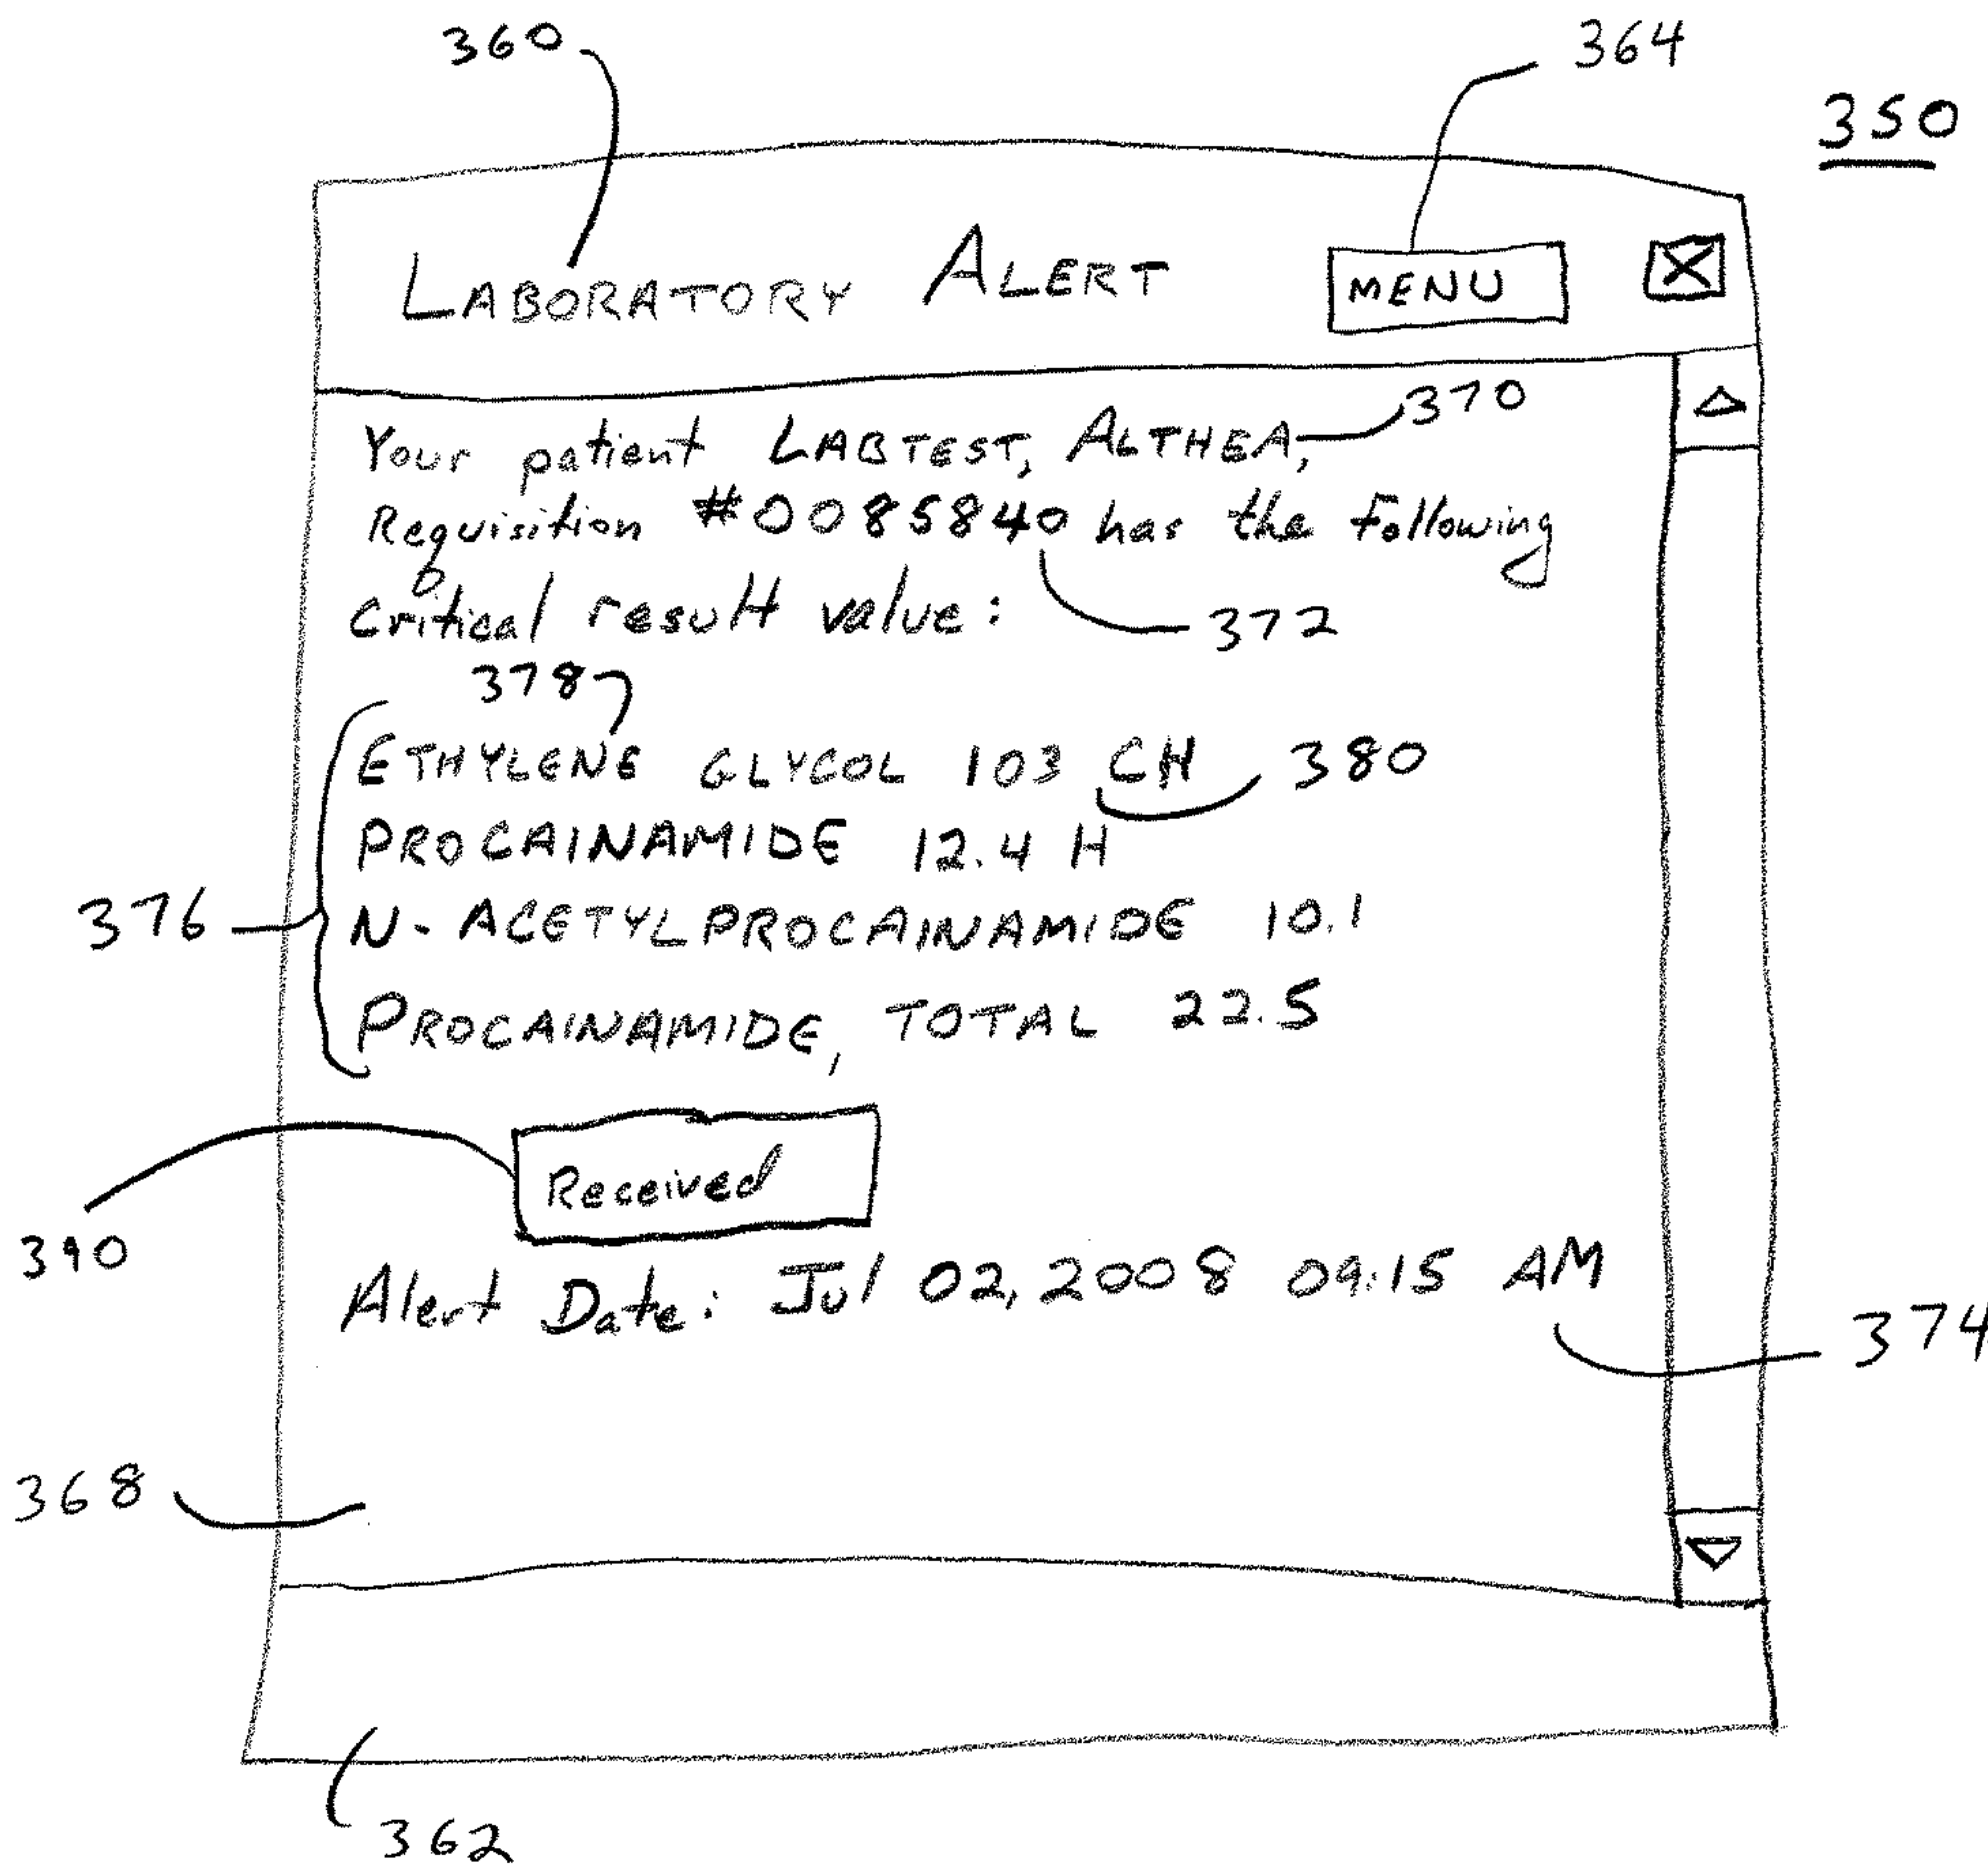 360
364
350
LABORATORY ALERT MENU
Your patient LABTEST, ALTHEA, 370
Requisition #0085840 has the following
Critical result value: 372
378
ETHYLENE GLYCOL 103 CH 380
PROCAINAMIDE 12.4 H
376 N-ACETYLPROCAINAMIDE 10.1
PROCAINAMIDE, TOTAL 22.5
Received
390
Alert Date: Jul 02, 2008 09:15 AM
374
368
362